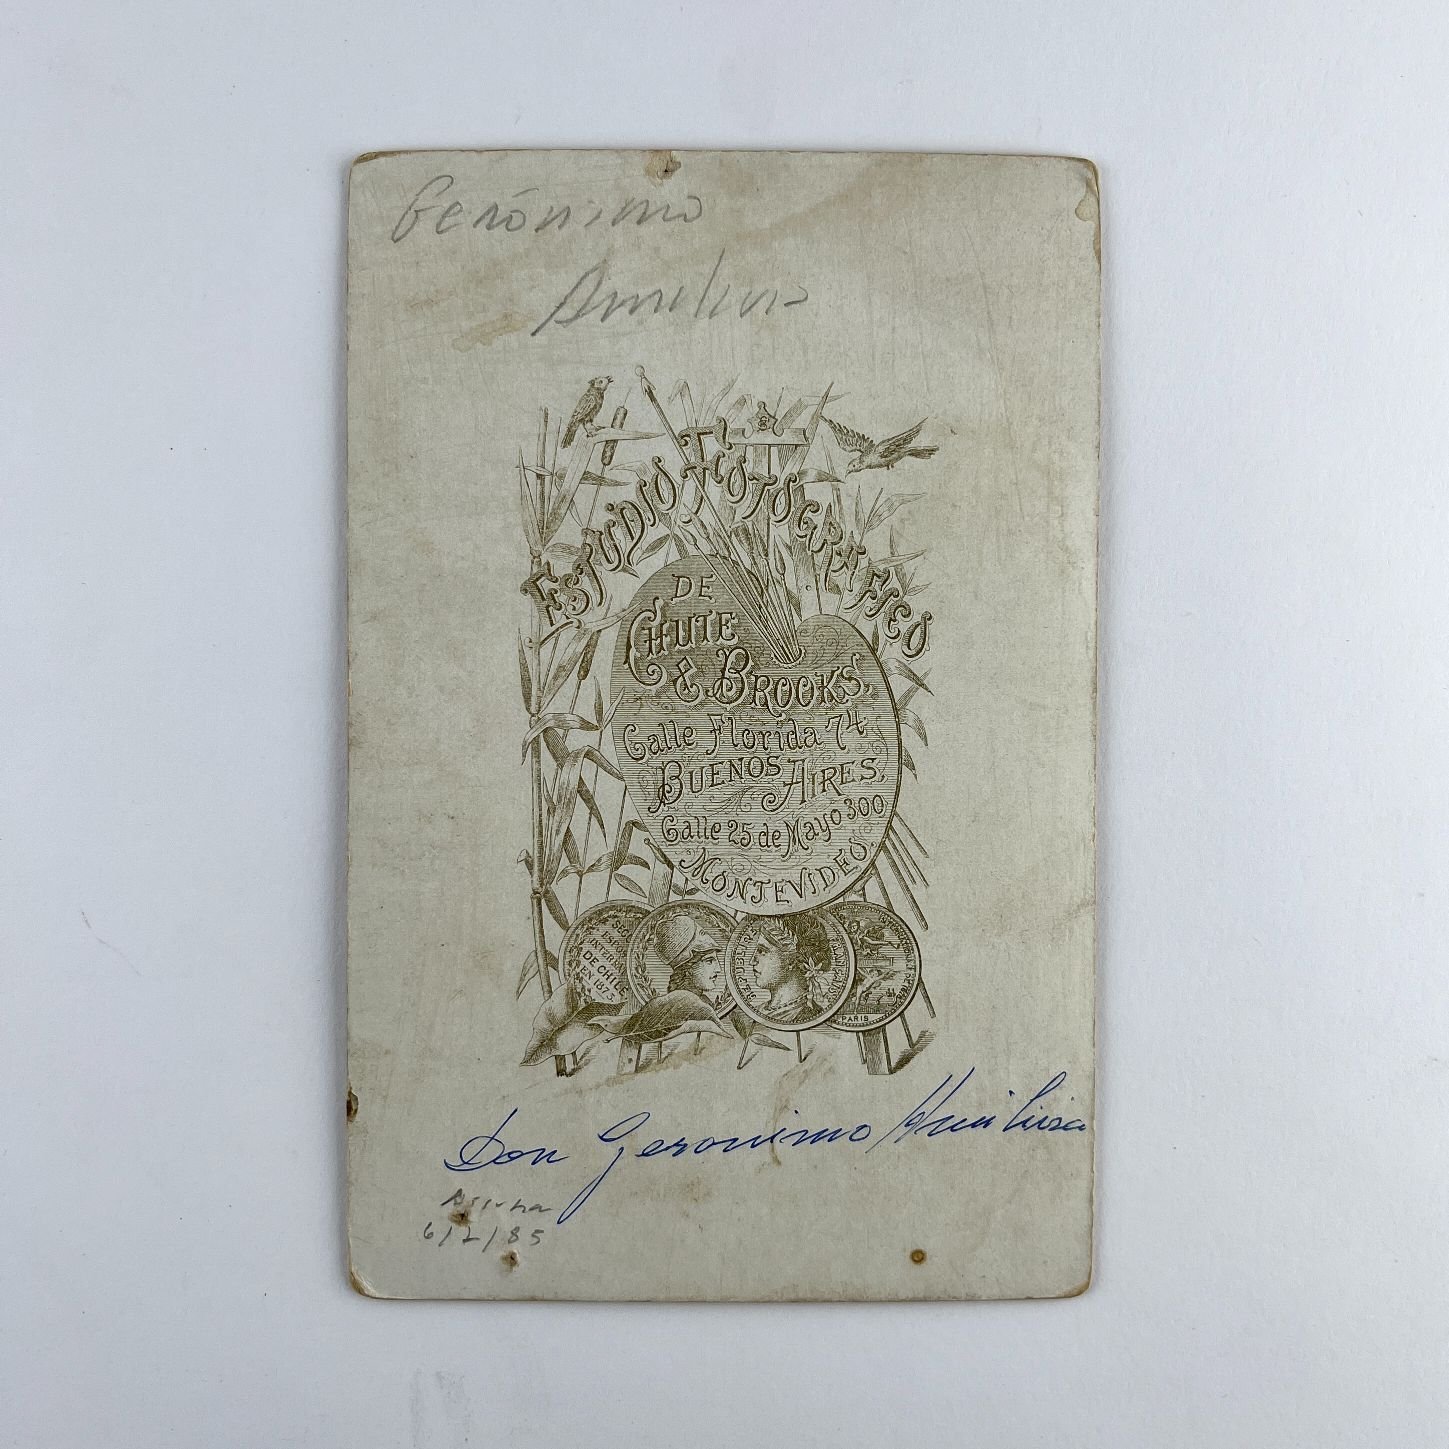 Gerónimo
ESTUDIO FOTOGRAFICO
DE
CHUTE
& BROOKS.
Calle Florida 74
BUENOS AIRES.
Calle 25 de Mayo 300
MONTEVIDEO.
DE CHILE
EN 1875.
REPUBLIQUE FRANÇAISE
PARIS
Don Geronimo
6/2/85